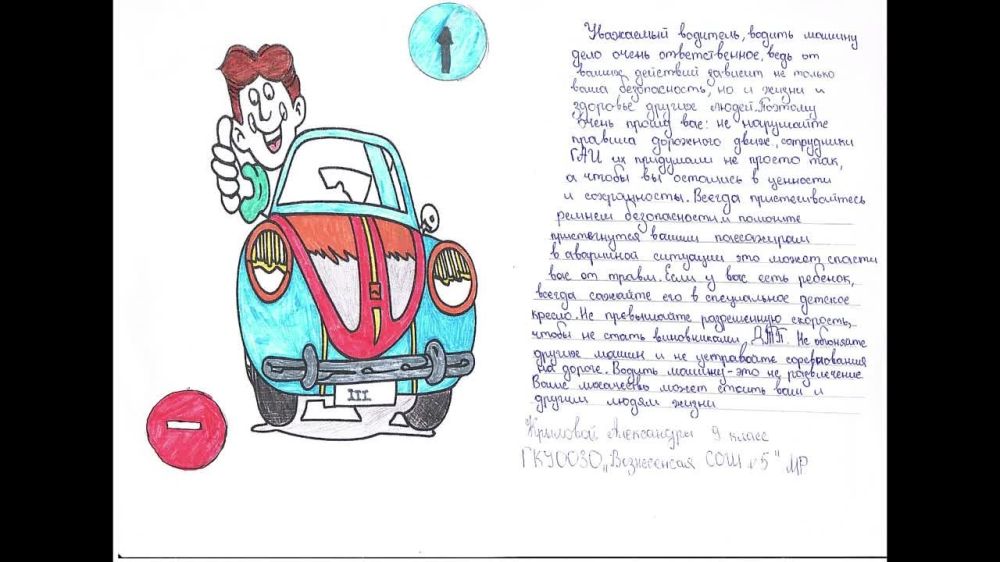 Уважаемый водитель, водить машину
дело очень ответственное, ведь от
ваших действий зависит не только
ваша безопасность, но и жизни и
здоровье других людей. Поэтому
очень прошу вас: не нарушайте
правила дорожного движе, сотрудники
ГАИ их придумали не просто так,
а чтобы вы остались в ценности
и сохранности. Всегда пристегивайтесь
ремнем безопасности и помогите
пристегнутся вашим пассажирам
в аварийной ситуации это может спасти
вас от травм. Если у вас есть ребенок,
всегда сажайте его в специальное детское
кресло. Не превышайте разрешенную скорость,
чтобы не стать виновниками ДТП. Не обгоняйте
других машин и не устравайте соревнования
на дороге. Водить машину - это не развлечение
Ваше лихачество может стоить вам и
другим людям жизни
Крыловой Александры 9 класс
ГКУОЗО "Вознесенсая СОШ №5" МР
III